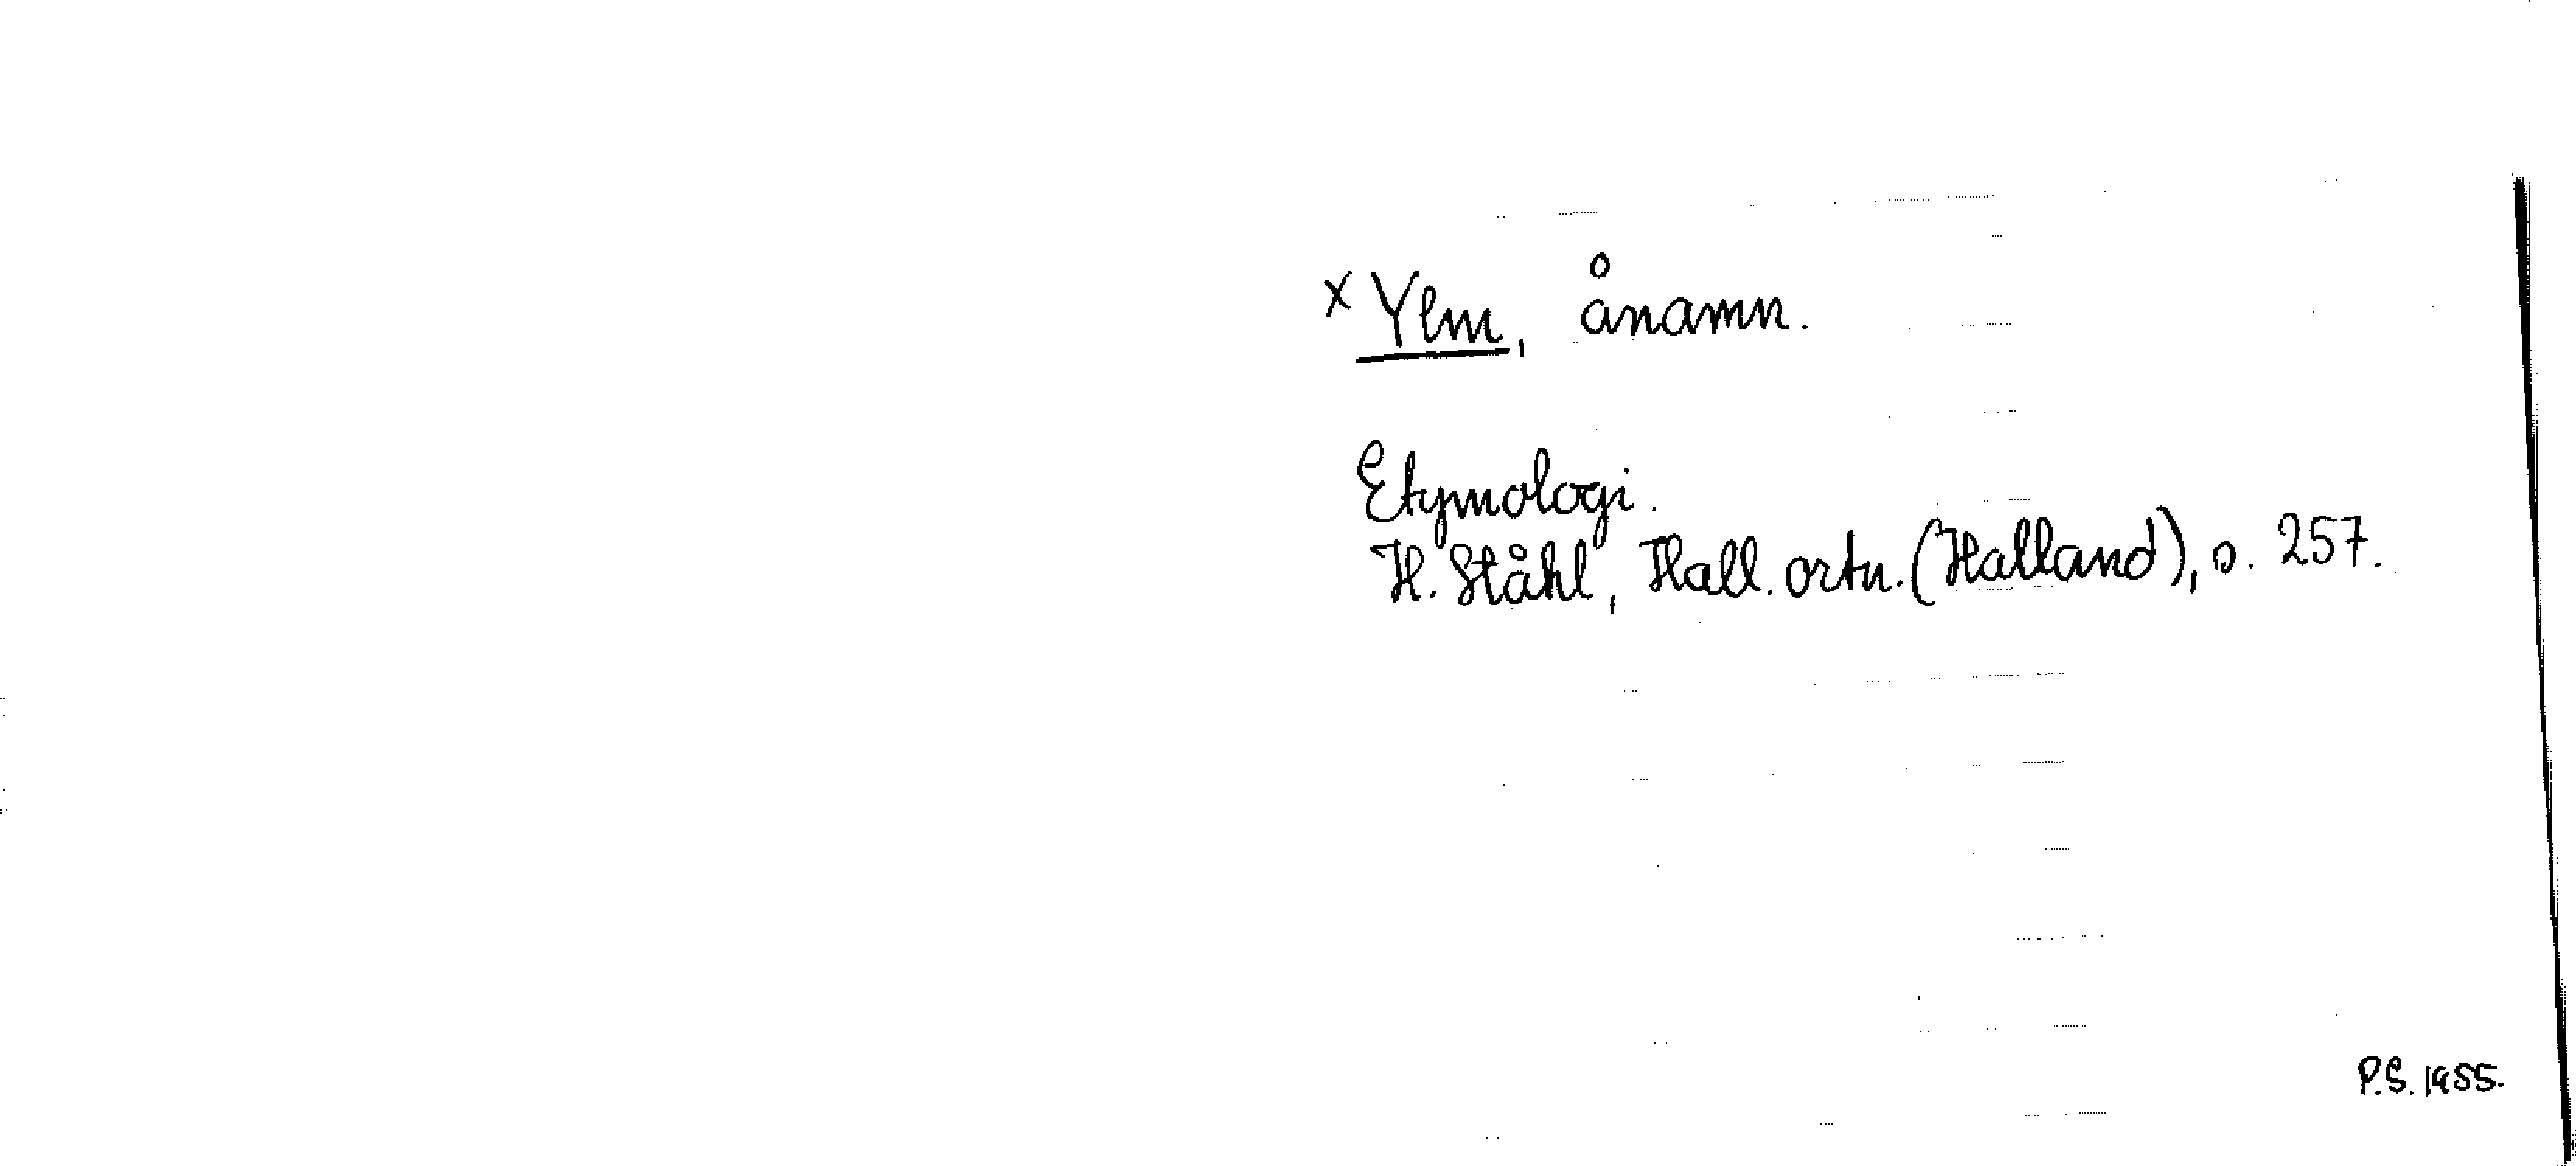 x Ylm, ånamn.
Etymologi.
H. Ståhl, Hall. ortn. (Halland), s. 257.
P.S. 1955.